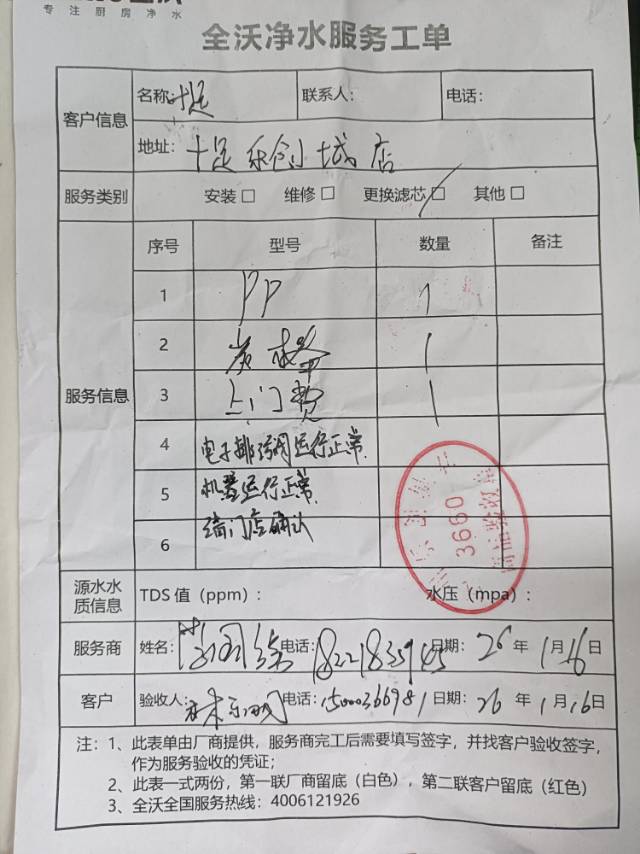 专注厨房净水
全沃净水服务工单
客户信息 名称:十足 联系人: 电话:
地址: 十足 乐创小城店
服务类别 安装 □ 维修 □ 更换滤芯 □ 其他 □
服务信息 序号 型号 数量 备注
1 PP 1
2 炭棒 1
3 上门费 1
4 电子排污阀运行正常.
5 机器运行正常.
6 请门店确认
3660
源水水质信息 TDS 值（ppm）: 水压（mpa）:
服务商 姓名: 电话: 日期: 26 年 1月16日
客户 验收人: 电话: 15000366981 日期: 26 年 1月16日
注：1、此表单由厂商提供，服务商完工后需要填写签字，并找客户验收签字，
作为服务验收的凭证；
2、此表一式两份，第一联厂商留底（白色），第二联客户留底（红色）
3、全沃全国服务热线：4006121926